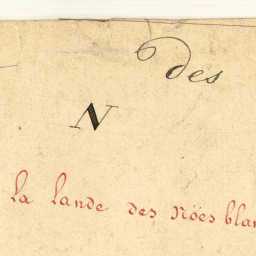 des
N
la lande des Nöes blan